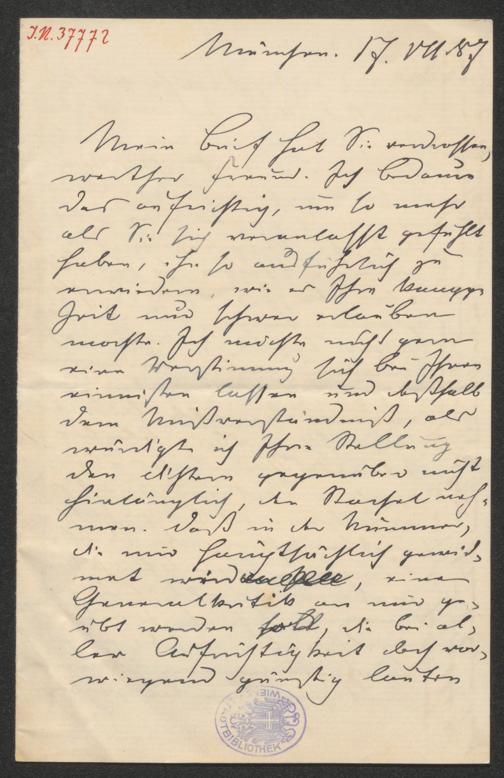 J.N. 37772
München. 17. VII. 87
Mein Brief hat Sie verdrossen,
werther Freund. Ich bedaure
das aufrichtig, um so mehr
als Sie sich veranlasst gefühlt
haben, ihn so ausführlich zu
erwiedern, wie es Ihre knappe
Zeit nur schwer erlauben
mochte. Ich möchte nicht gern
eine Verstimmung sich bei Ihnen
einnisten lassen und deßhalb
dem Mißverständniß, als
würdigte ich Ihre Stellung
den Dichtern gegenüber nicht
hinlänglich, den Stachel neh-
men. Daß in der Nummer,
die mir hauptsächlich gewid-
met wird, eine
Generalkritik an mir ge-
übt werden soll, die bei al-
ler Aufrichtigkeit doch vor-
wiegend günstig lauten